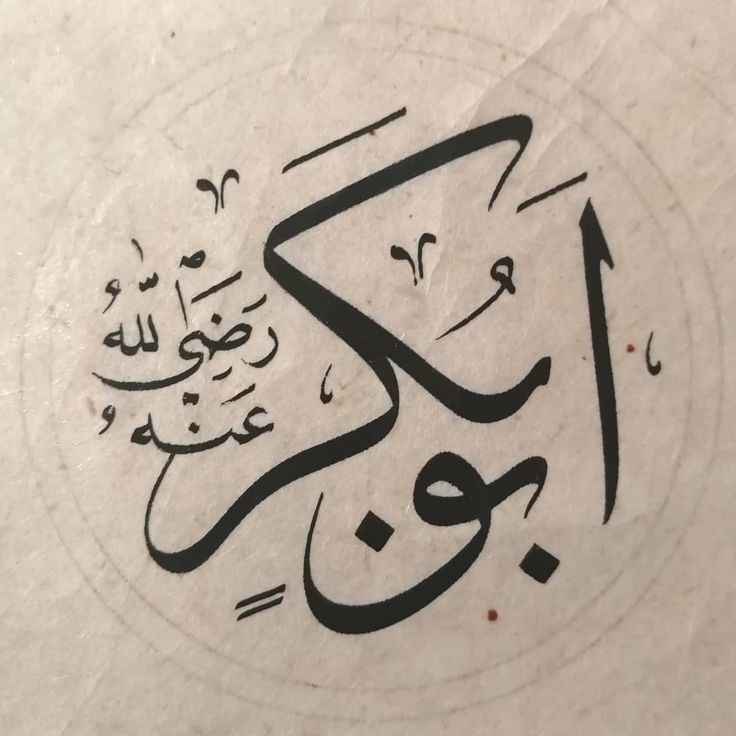 اَبُو بَكَرٍ
رَضَِيَ اللّٰهُ
عَنْهُ